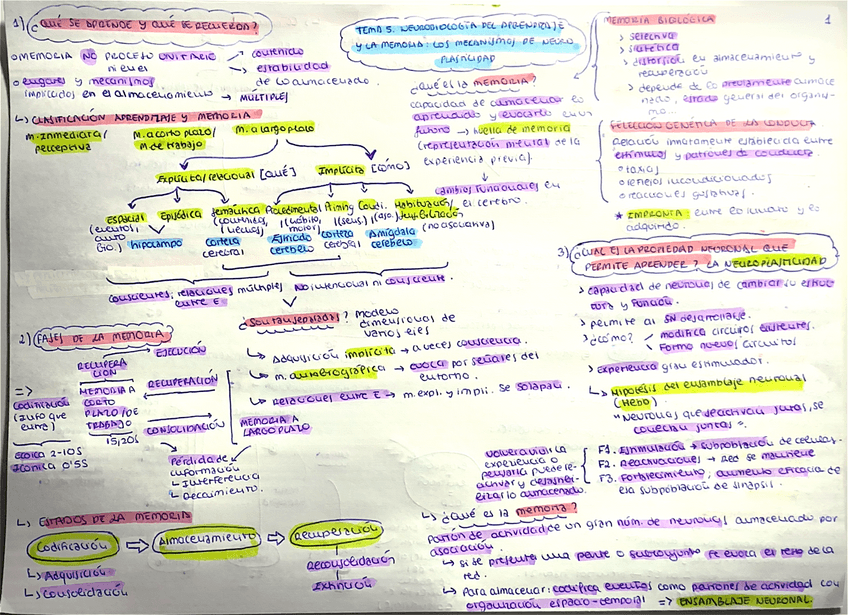 1) ¿QUÉ SE APRENDE Y QUÉ SE RECUERDA?
○MEMORIA NO PROCESO UNITARIO
ni en el
→ contenido
→ estabilidad
de lo almacenado.
○Lugares y mecanismos
implicados en el almacenamiento → MÚLTIPLES
↳ CLASIFICACIÓN APRENDIZAJE Y MEMORIA
M. Inmediata/
perceptiva
M. a corto plazo/
M. de trabajo
M. a largo plazo
Explícita/relacional [QUÉ]
Implícita [CÓMO]
Espacial
Episódica
Semántica
Procedimental
Priming
Condi.
Habituación/
(eventos,
auto
bio.)
(no asociativa)
hipocampo
corteza
cerebral
Estriado
cerebelo
corteza
cerebral
Amígdala
cerebelo
conscientes, relaciones múltiples
entre E
No intencional ni consciente.
TEMA 5. NEUROBIOLOGÍA DEL APRENDIZAJE
Y LA MEMORIA: LOS MECANISMOS DE NEURO
PLASTICIDAD
¿Qué es la MEMORIA?
capacidad de almacenar lo
aprendido y evocarlo en un
futuro → huella de memoria
(representación mental de la
experiencia previa)
cambios funcionales en
el cerebro.
MEMORIA BIOLÓGICA
> selectiva
> distorsión en almacenamiento y
recuperación
> depende de lo previamente almace
nado, estado general del organis-
mo...
1
SELECCIÓN GENÉTICA DE LA CONDUCTA
Relación innatamente establecida entre
estímulos y patrones de conducta.
○ taxias
○ reflejos incondicionados
○ reacciones gustativas.
★ IMPRONTA: entre lo innato y lo
adquirido.
3) ¿CUÁL ES LA PROPIEDAD NEURONAL QUE
PERMITE APRENDER? LA NEUROPLASTICIDAD
> capacidad de neuronas de cambiar su estruc
tura y función.
> permite al SN desarrollarse.
> ¿cómo?
modifica circuitos existentes.
Forma nuevos circuitos
> Experiencia gran estimulador.
↳ Hipótesis del ensamblaje neuronal
(Hebb)
"Neuronas que se activan juntas, se
conectan juntas".
¿Son tan separadas? Modelo
dimensional de
varios ejes
↳ Adquisición implícita → a veces consciencia.
↳ M. autobiográfica → evoca por señales del
entorno.
↳ Relaciones entre E → m. expl. y impli. se solapan.
2) FASES DE LA MEMORIA
RECUPERA
CIÓN
EJECUCIÓN
=>
codificación
(info que
entra)
MEMORIA A
CORTO
PLAZO/DE
TRABAJO
15,20s
RECUPERACIÓN
CONSOLIDACIÓN
MEMORIA A
LARGO PLAZO
ecoica 2-10s
Icónica 0'5s
Pérdida de
información
↳ Interferencia
↳ Decaimiento.
volver a vivir la
experiencia o
pensarla puede re-
activar y
lo almacenado.
F1. Estimulación → subpoblación de células.
F2. Reactivaciones → Red se mantiene
F3. Fortalecimiento, aumento eficacia de
esa subpoblación de sinapsis.
↳ ESTADOS DE LA MEMORIA
Codificación
⇨
Almacenamiento
⇨
Recuperación
↳ Adquisición
↳ Consolidación
Reconsolidación
Extinción
↳ ¿Qué es la memoria?
Patrón de actividad de un gran núm. de neuronas almacenado por
asociación.
↳ si se presenta una parte o subconjunto se evoca el resto de la
red.
↳ Para almacenar: codifica eventos como patrones de actividad con
organización espacio-temporal => ENSAMBLAJE NEURONAL.